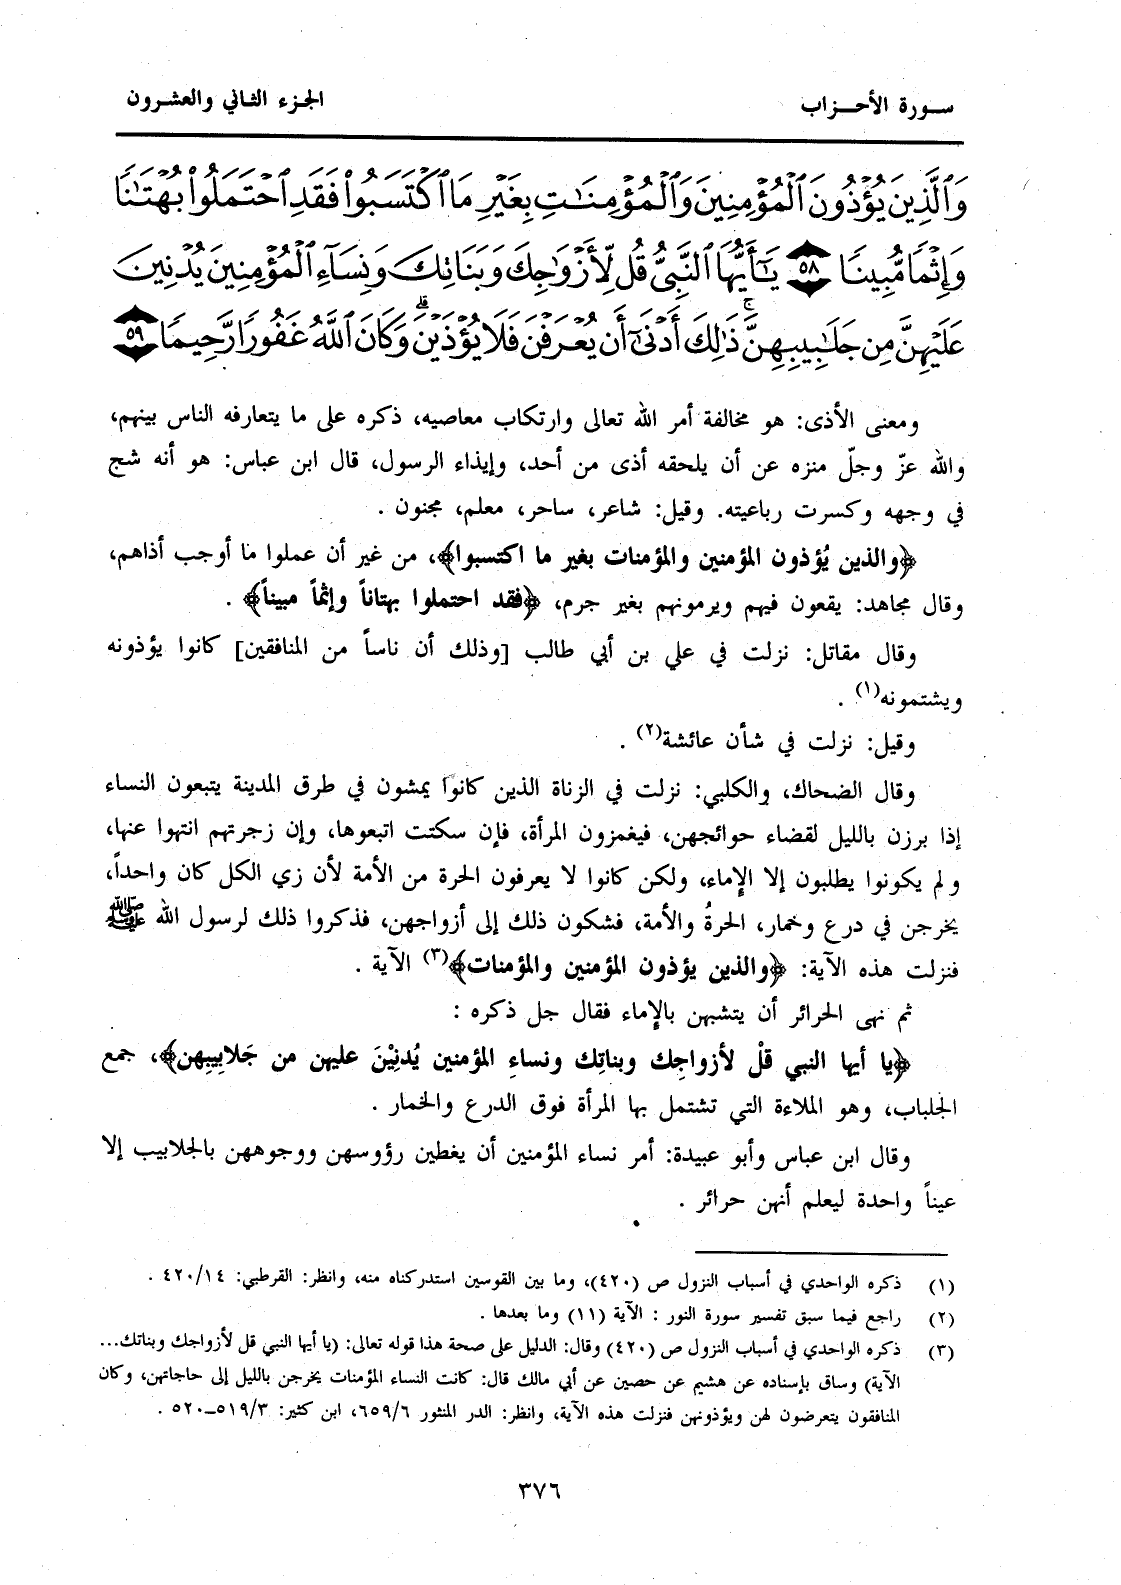 سورة الأحزاب
الجزء الثاني والعشرون
وَٱلَّذِينَ يُؤْذُونَ ٱلْمُؤْمِنِينَ وَٱلْمُؤْمِنَٰتِ بِغَيْرِ مَا ٱكْتَسَبُوا۟ فَقَدِ ٱحْتَمَلُوا۟ بُهْتَٰنًا
وَإِثْمًا مُّبِينًا ٥٨ يَٰٓأَيُّهَا ٱلنَّبِىُّ قُل لِّأَزْوَٰجِكَ وَبَنَاتِكَ وَنِسَآءِ ٱلْمُؤْمِنِينَ يُدْنِينَ
عَلَيْهِنَّ مِن جَلَٰبِيبِهِنَّ ۚ ذَٰلِكَ أَدْنَىٰٓ أَن يُعْرَفْنَ فَلَا يُؤْذَيْنَ ۗ وَكَانَ ٱللَّهُ غَفُورًا رَّحِيمًا ٥٩
ومعنى الأذى: هو مخالفة أمر الله تعالى وارتكاب معاصيه، ذكره على ما يتعارفه الناس بينهم،
والله عزّ وجلّ منزه عن أن يلحقه أذى من أحد، وإيذاء الرسول، قال ابن عباس: هو أنه شج
في وجهه وكسرت رباعيته. وقيل: شاعر، ساحر، معلم، مجنون .
﴿والذين يُؤذون المؤمنين والمؤمنات بغير ما اكتسبوا﴾، من غير أن عملوا ما أوجب أذاهم،
وقال مجاهد: يقعون فيهم ويرمونهم بغير جرم، ﴿فقد احتملوا بهتاناً وإثماً مبيناً﴾ .
وقال مقاتل: نزلت في علي بن أبي طالب [وذلك أن ناساً من المنافقين] كانوا يؤذونه
ويشتمونه(١) .
وقيل: نزلت في شأن عائشة(٢) .
وقال الضحاك، والكلبي: نزلت في الزناة الذين كانوا يمشون في طرق المدينة يتبعون النساء
إذا برزن بالليل لقضاء حوائجهن، فيغمزون المرأة، فإن سكتت اتبعوها، وإن زجرتهم انتهوا عنها،
ولم يكونوا يطلبون إلا الإماء، ولكن كانوا لا يعرفون الحرة من الأمة لأن زي الكل كان واحداً،
يخرجن في درع وخمار، الحرةُ والأمة، فشكون ذلك إلى أزواجهن، فذكروا ذلك لرسول الله ﷺ
فنزلت هذه الآية: ﴿والذين يؤذون المؤمنين والمؤمنات﴾(٣) الآية .
ثم نهى الحرائر أن يتشبهن بالإماء فقال جل ذكره :
﴿يا أيها النبي قلْ لأزواجِك وبناتِك ونساءِ المؤمنين يُدنِيْنَ عليهن من جَلابِيبِهن﴾، جمع
الجلباب، وهو الملاءة التي تشتمل بها المرأة فوق الدرع والخمار .
وقال ابن عباس وأبو عبيدة: أمر نساء المؤمنين أن يغطين رؤوسهن ووجوههن بالجلابيب إلا
عيناً واحدة ليعلم أنهن حرائر .
(١) ذكره الواحدي في أسباب النزول ص (٤٢٠)، وما بين القوسين استدركناه منه، وانظر: القرطبي: ٤٢٠/١٤ .
(٢) راجع فيما سبق تفسير سورة النور : الآية (١١) وما بعدها .
(٣) ذكره الواحدي في أسباب النزول ص (٤٢٠) وقال: الدليل على صحة هذا قوله تعالى: (يا أيها النبي قل لأزواجك وبناتك...
الآية) وساق بإسناده عن هشيم عن حصين عن أبي مالك قال: كانت النساء المؤمنات يخرجن بالليل إلى حاجاتهن، وكان
المنافقون يتعرضون لهن ويؤذونهن فنزلت هذه الآية، وانظر: الدر المنثور ٦٥٩/٦، ابن كثير: ٥١٩/٣ــ٥٢٠ .
٣٧٦